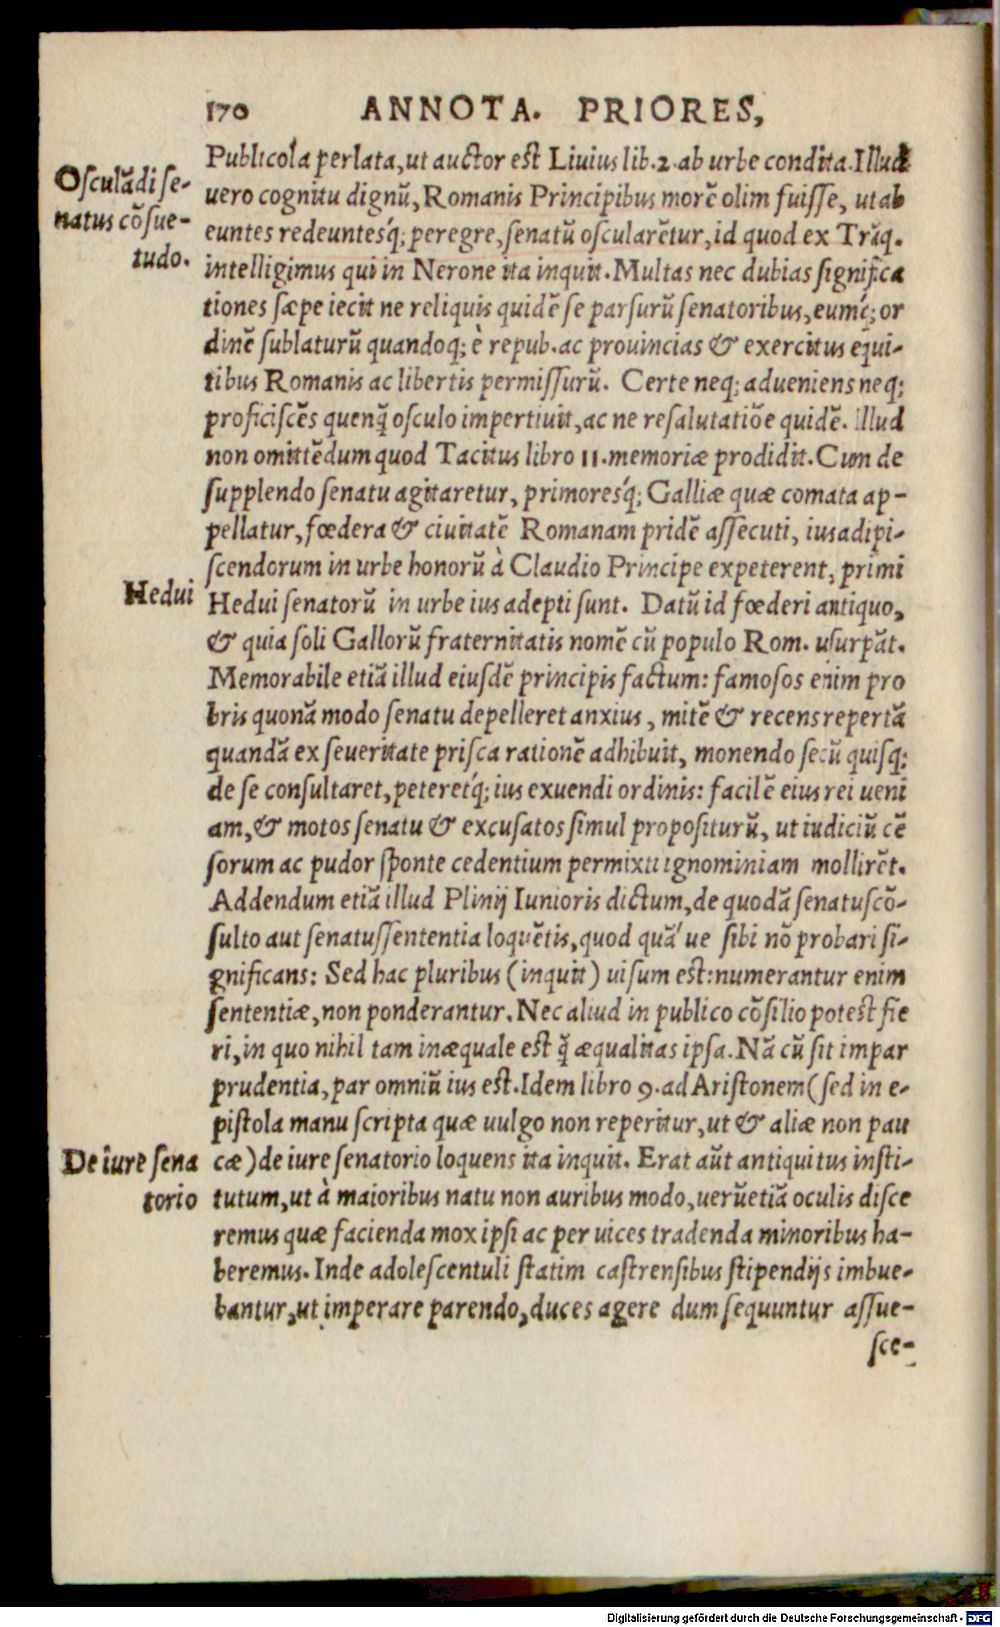 170 ANNOTA. PRIORES,
Publicola perlata, ut auctor est Liuius lib. 2. ab urbe condita. Illud
Osculãdi se-
natus cõsue-
tudo.
uero cognitu dignũ, Romanis Principibus morẽ olim fuisse, ut ab
euntes redeuntesq́; peregre, senatũ oscularẽtur, id quod ex Trãq.
intelligimus qui in Nerone ita inquit. Multas nec dubias significa
tiones sæpe iecit ne reliquis quidẽ se parsurũ senatoribus, eumq́; or
dinẽ sublaturũ quandoq; è repub. ac prouincias & exercitus equi-
tibus Romanis ac libertis permissurũ. Certe neq; adueniens neq;
proficiscẽs quenq̃ osculo impertiuit, ac ne resalutatiõe quidẽ. Illud
non omittẽdum quod Tacitus libro 11. memoriæ prodidit. Cum de
supplendo senatu agitaretur, primoresq́; Galliæ quæ comata ap-
pellatur, fœdera & ciuitatẽ Romanam pridẽ assecuti, ius adipi-
scendorum in urbe honorũ à Claudio Principe expeterent, primi
Hedui
Hedui senatorũ in urbe ius adepti sunt. Datũ id fœderi antiquo,
& quia soli Gallorũ fraternitatis nomẽ cũ populo Rom. usurpãt.
Memorabile etiã illud eiusdẽ principis factum: famosos enim pro
bris quonã modo senatu depelleret anxius, mitẽ & recens repertã
quandã ex seueritate prisca rationẽ adhibuit, monendo secũ quisq;
de se consultaret, peteretq́; ius exuendi ordinis: facilẽ eius rei ueni
am, & motos senatu & excusatos simul propositurũ, ut iudiciũ cẽ
sorum ac pudor sponte cedentium permixti ignominiam mollirẽt.
Addendum etiã illud Plinij Iunioris dictum, de quodã senatuscõ-
sulto aut senatussententia loquẽtis, quod quã'ue sibi nõ probari si-
gnificans: Sed hac pluribus (inquit) uisum est: numerantur enim
sententiæ, non ponderantur. Nec aliud in publico cõsilio potest fie
ri, in quo nihil tam inæquale est q̃ æqualitas ipsa. Nã cũ sit impar
prudentia, par omniũ ius est. Idem libro 9. ad Aristonem (sed in e-
pistola manu scripta quæ uulgo non reperitur, ut & aliæ non pau
De iure sena
torio
cæ) de iure senatorio loquens ita inquit. Erat aũt antiquitus insti-
tutum, ut à maioribus natu non auribus modo, uerũetiã oculis disce
remus quæ facienda mox ipsi ac per uices tradenda minoribus ha-
beremus. Inde adolescentuli statim castrensibus stipendijs imbue-
bantur, ut imperare parendo, duces agere dum sequuntur assue-
sce-
Digitalisierung gefördert durch die Deutsche Forschungsgemeinschaft - DFG